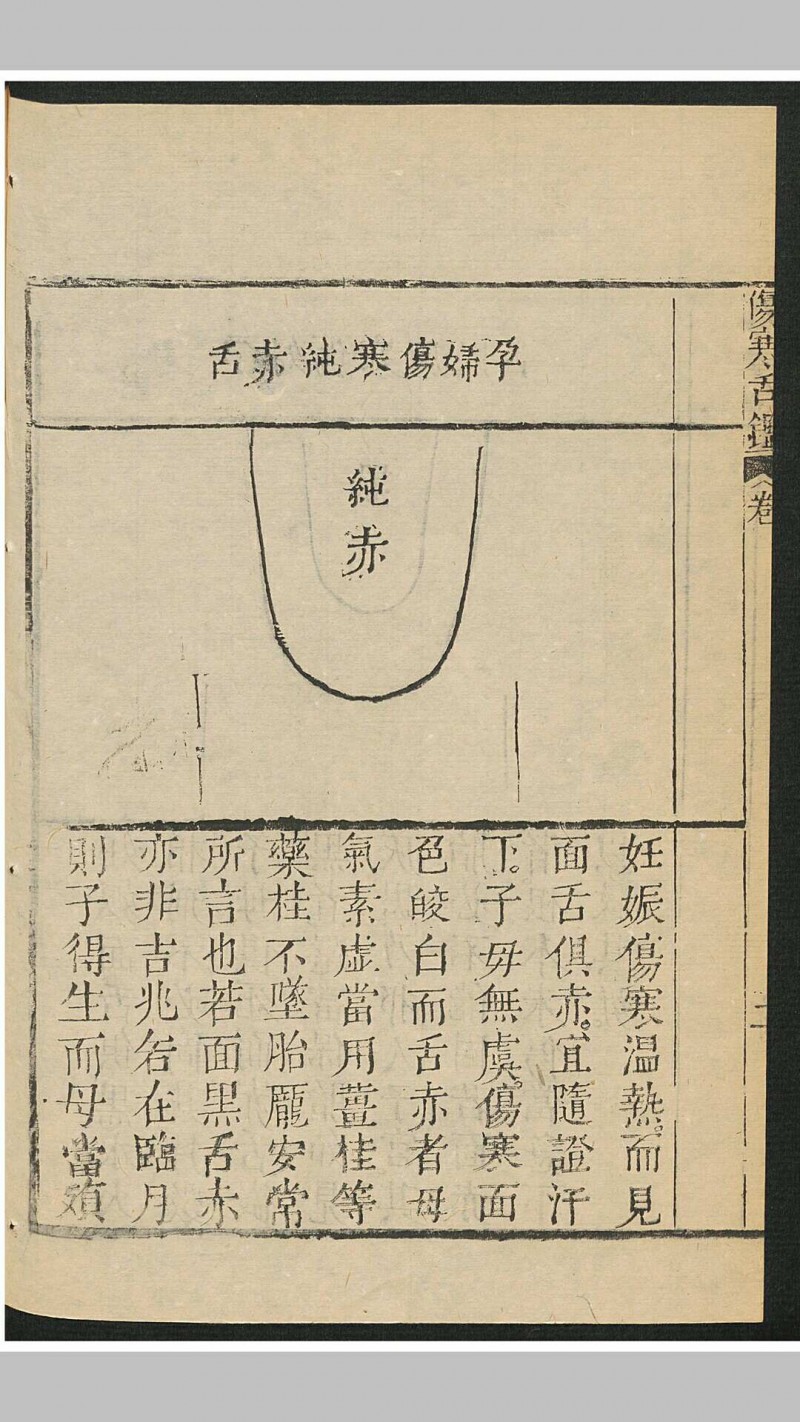 傷寒舌鑑
卷
二
孕婦傷寒純赤舌
純赤
妊娠傷寒温熱。而見
面舌俱赤。宜隨證汗
下。子毋無虞。傷寒面
色皎白而舌赤者母
氣素虛當用薑桂等
藥桂不墜胎龐安常
所言也若面黑舌赤
亦非吉兆若在臨月
則子得生而母當殞